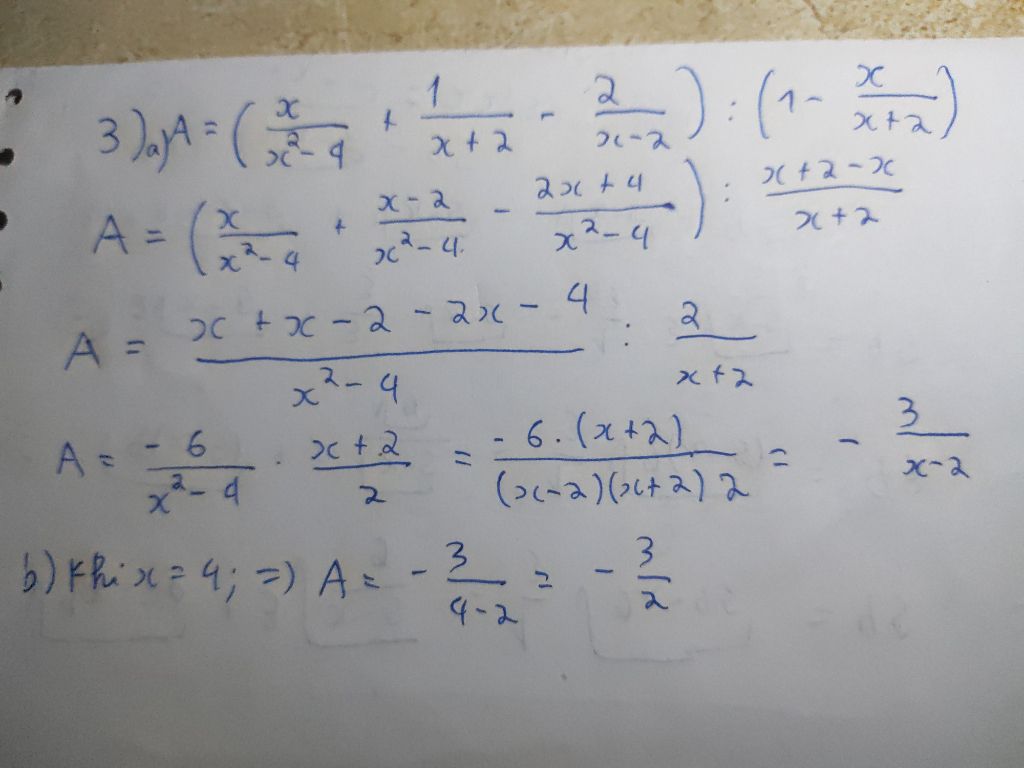 3) a) A = ( x/(x² - 4) + 1/(x + 2) - 2/(x - 2) ) : ( 1 - x/(x + 2) )
A = ( x/(x² - 4) + (x - 2)/(x² - 4) - (2x + 4)/(x² - 4) ) : (x + 2 - x)/(x + 2)
A = (x + x - 2 - 2x - 4)/(x² - 4) : 2/(x + 2)
A = -6/(x² - 4) . (x + 2)/2 = -6.(x + 2)/((x - 2)(x + 2)2) = - 3/(x - 2)
b) Khi x = 4; => A = - 3/(4 - 2) = - 3/2